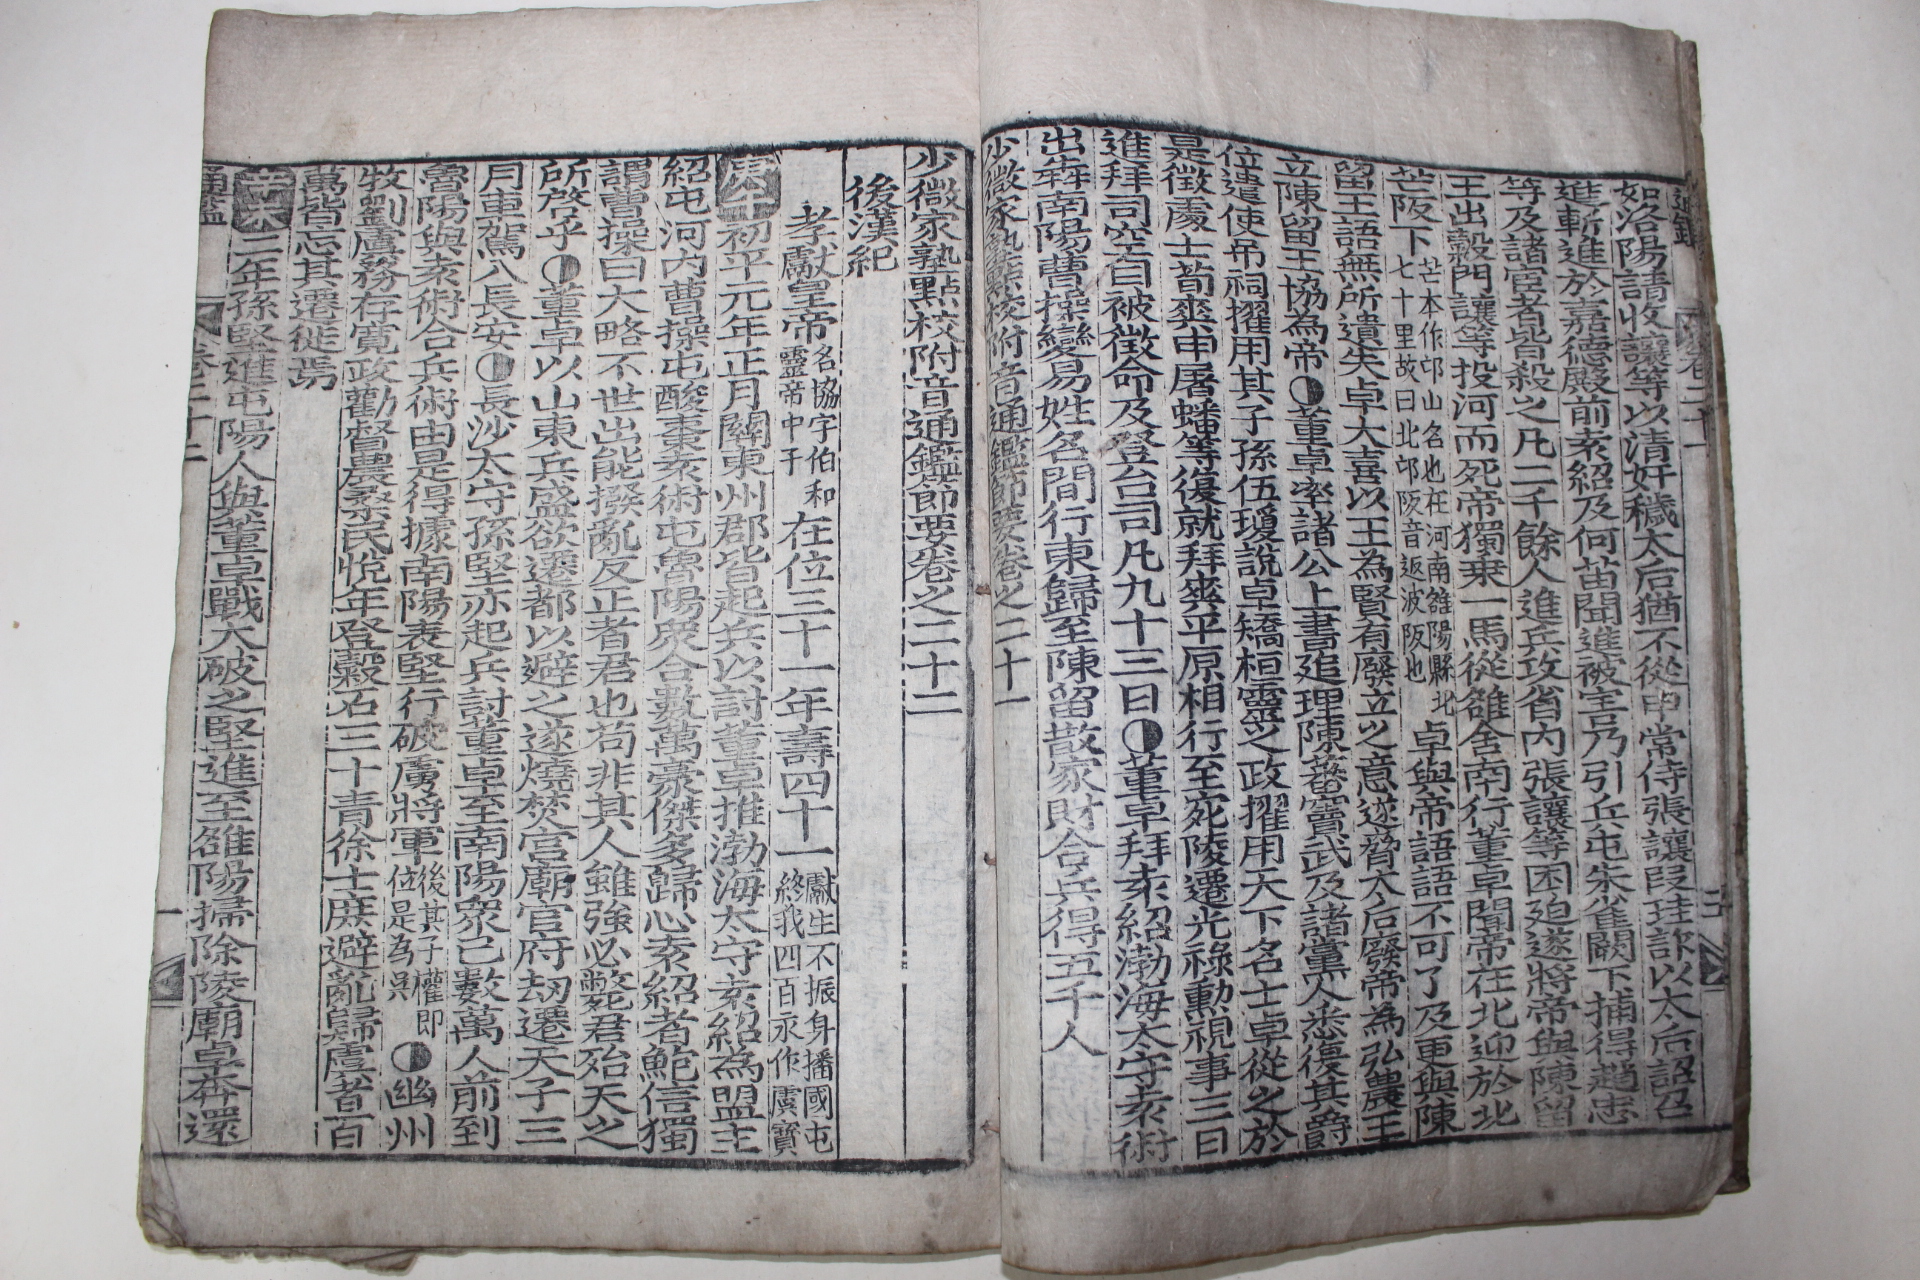 如洛陽請收讓等以清奸穢太后猶不從中常侍張讓叚珪詐以太后詔召
進斬進於嘉德殿前袁紹及何苗聞進被害乃引兵屯朱雀闕下捕得趙忠
等及諸宦者皆殺之凡二千餘人進兵攻省內張讓等困迫遂將帝與陳留
王出糓門讓等投河而死帝獨乗一馬從雒舍南行董卓聞帝在北迎於北
芒阪下芒本作邙山名也在河南雒陽縣北七十里故曰北邙阪音返波阪也卓與帝語語不可了及更與陳
留王語無所遺失卓大喜以王為賢有廢立之意遂脅太后廢帝為弘農王
立陳留王協為帝◑董卓率諸公上書追理陳蕃竇武及諸黨人悉復其爵
位遣使吊祠擢用其子孫伍瓊說卓矯桓靈之政擢用天下名士卓從之於
是徵處士荀爽申屠蟠等復就拜爽平原相行至宛陵遷光祿勳視事三日
進拜司空自被徵命及登台司凡九十三日◑董卓拜袁紹渤海太守袁術
出犇南陽曹操變易姓名間行東歸至陳留散家財合兵得五千人
少微家塾點校附音通鑑節要卷之二十一
少微家塾點校附音通鑑節要卷之二十二
後漢紀
孝獻皇帝名協字伯和靈帝中子在位三十一年壽四十一獻生不振身播國屯終我四百永作虞賓
庚午初平元年正月關東州郡皆起兵以討董卓推渤海太守袁紹為盟主
紹屯河內曹操屯酸棗袁術屯魯陽衆合數萬豪傑多歸心袁紹者鮑信獨
謂曹操曰大略不世出能撥亂反正者君也苟非其人雖強必斃君殆天之
所啓乎◑董卓以山東兵盛欲遷都以避之遂燒焚宮廟官府劫遷天子三
月車駕入長安◑長沙太守孫堅亦起兵討董卓至南陽衆已數萬人前到
魯陽與袁術合兵術由是得據南陽表堅行破虜將軍後其子權即位是為吳◑幽州
牧劉虞務存寬政勸督農桑民悅年登穀石三十青徐士庶避亂歸虞者百
萬皆忘其遷徙焉
辛未二年孫堅進屯陽人與董卓戰大破之堅進至雒陽掃除陵廟卓奔還
通鑑 卷二十二 一